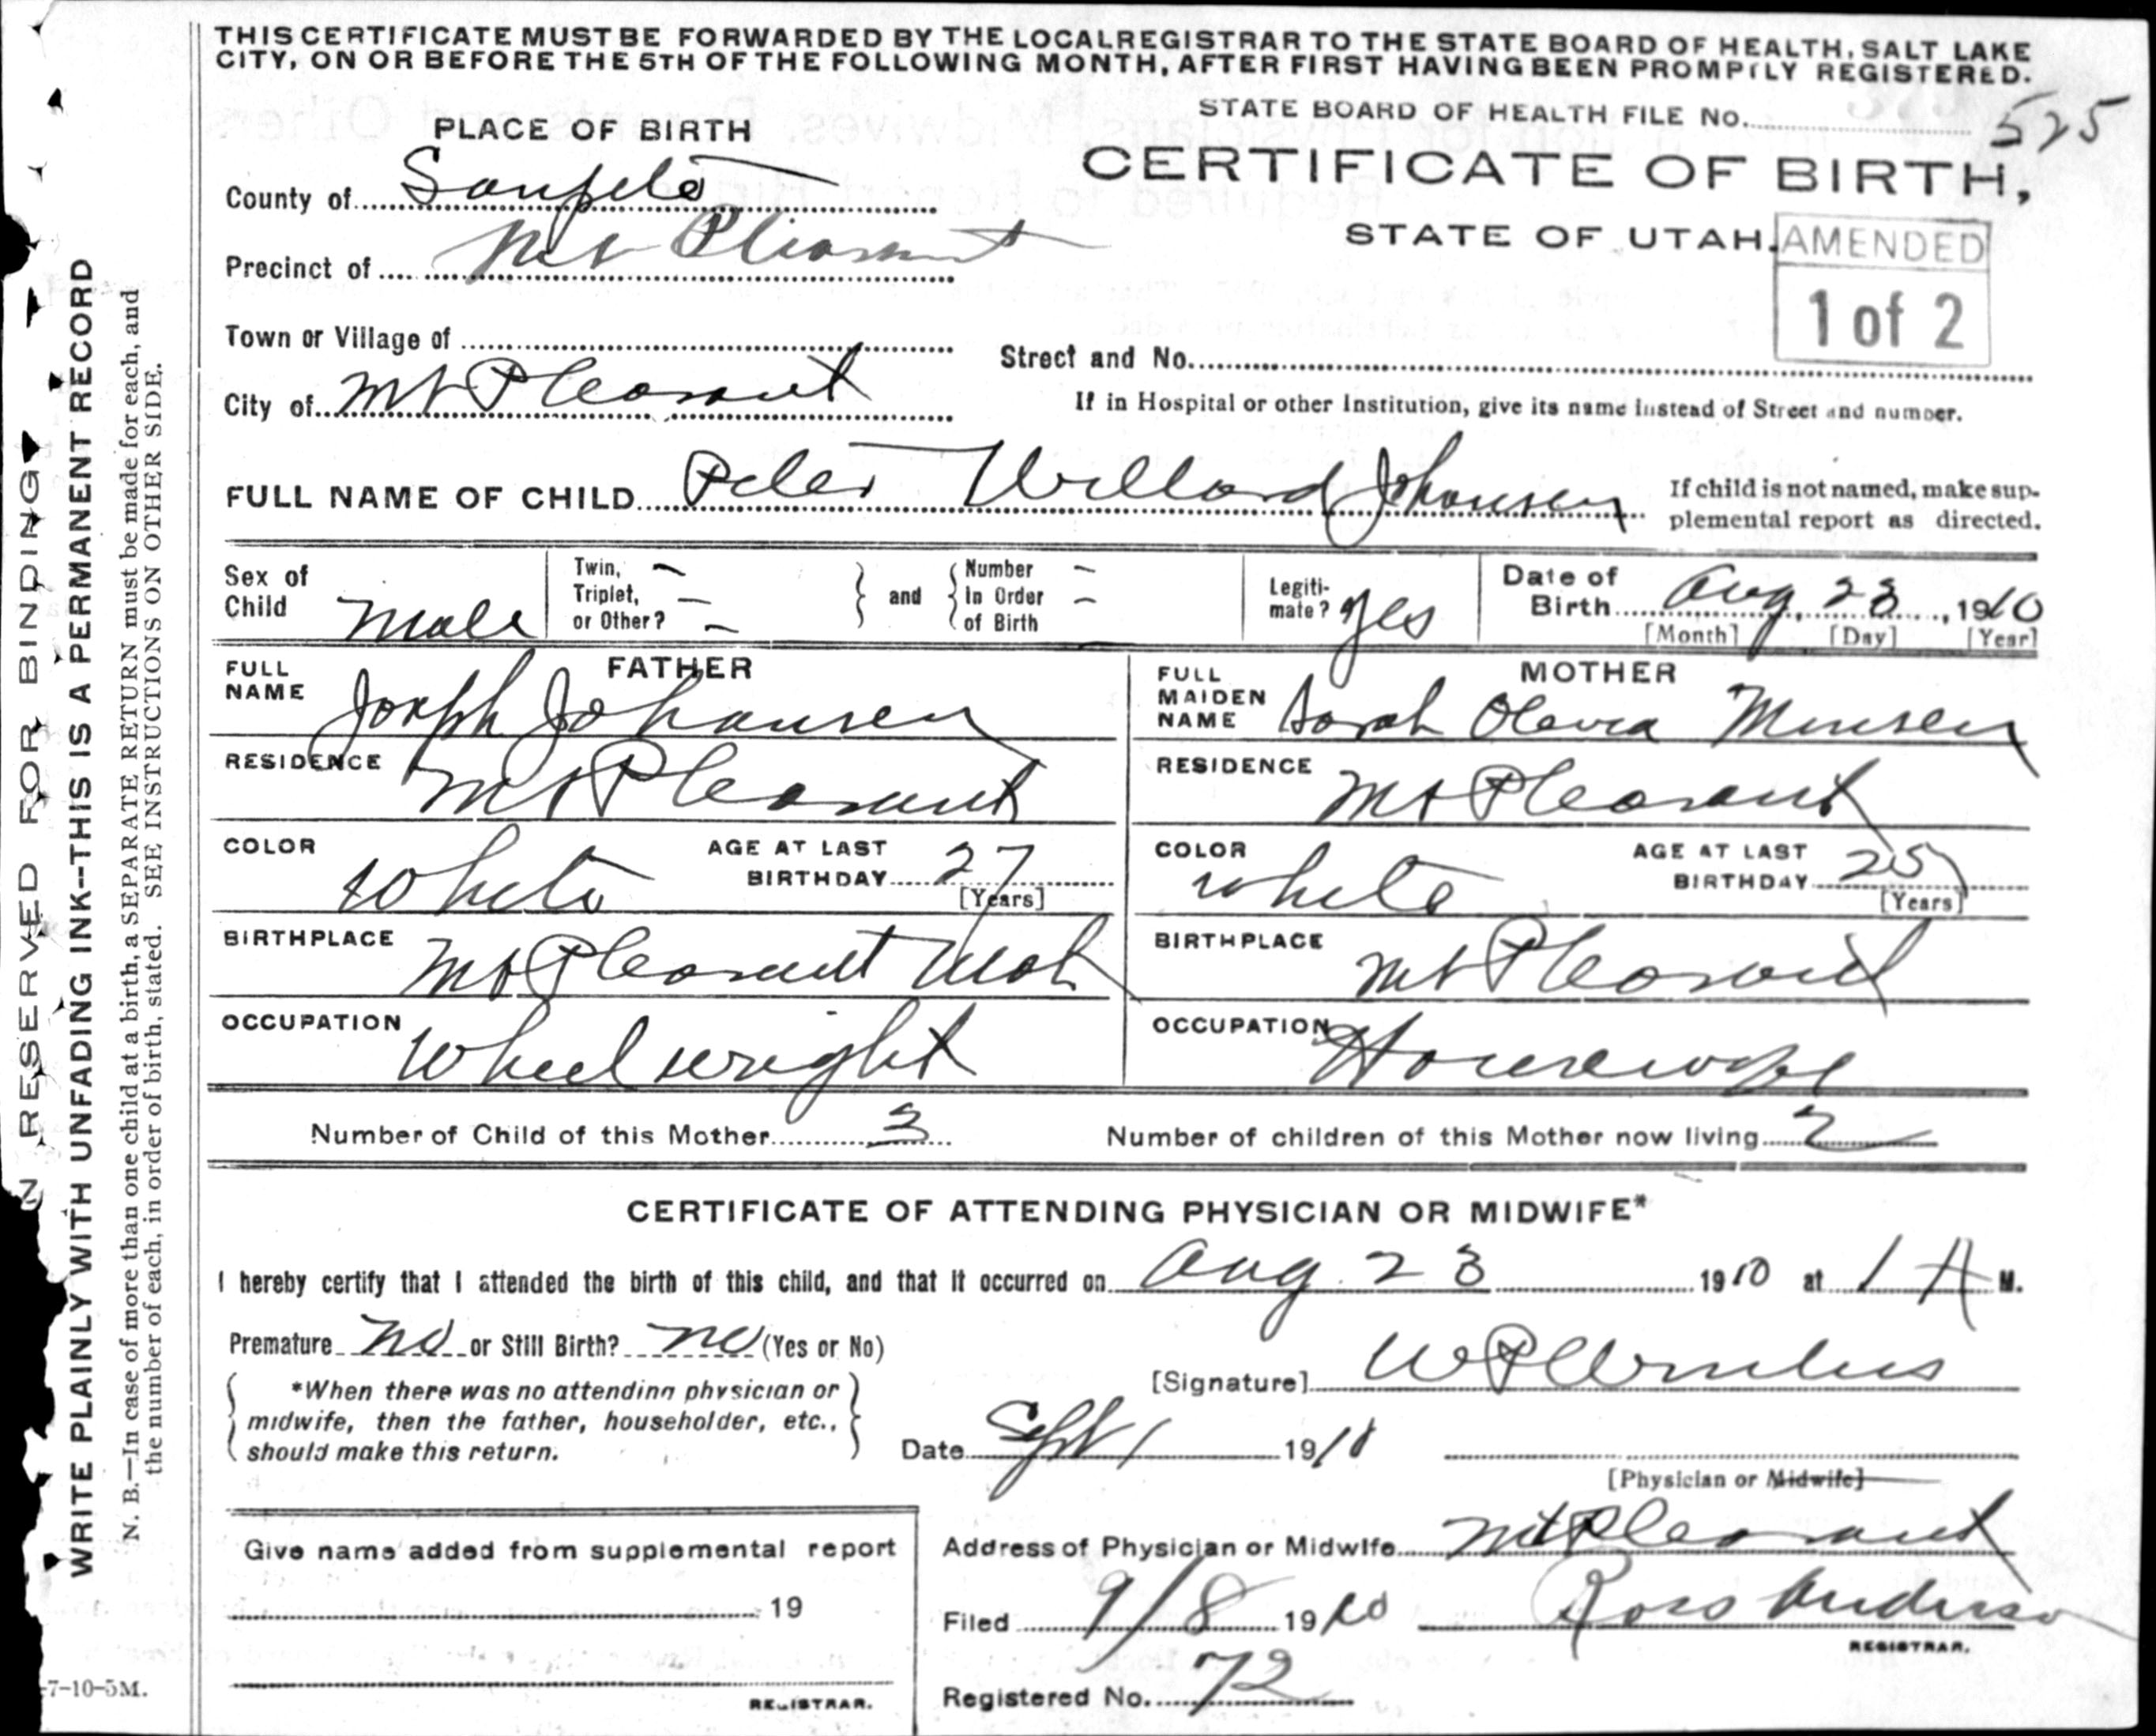 THIS CERTIFICATE MUST BE FORWARDED BY THE LOCAL REGISTRAR TO THE STATE BOARD OF HEALTH, SALT LAKE
CITY, ON OR BEFORE THE 5TH OF THE FOLLOWING MONTH, AFTER FIRST HAVING BEEN PROMPTLY REGISTERED.
STATE BOARD OF HEALTH FILE No. 525
PLACE OF BIRTH
CERTIFICATE OF BIRTH,
STATE OF UTAH.
AMENDED
1 of 2
County of Sanpete
Precinct of Mt Pleasant
Town or Village of
Street and No.
City of Mt Pleasant
If in Hospital or other Institution, give its name instead of Street and number.
FULL NAME OF CHILD Peter Willard Johansen
If child is not named, make sup-
plemental report as directed.
Sex of Child Male
Twin, Triplet, or Other? – – –
and
Number In Order of Birth – –
Legiti-mate? Yes
Date of Birth Aug 23, 1910
[Month] [Day] [Year]
FATHER
FULL NAME Joseph Johansen
RESIDENCE Mt Pleasant
COLOR White
AGE AT LAST BIRTHDAY 27
[Years]
BIRTHPLACE Mt Pleasant Utah
OCCUPATION Wheelwright
MOTHER
FULL MAIDEN NAME Sarah Olevia Monsen
RESIDENCE Mt Pleasant
COLOR White
AGE AT LAST BIRTHDAY 25
[Years]
BIRTHPLACE Mt Pleasant
OCCUPATION Housewife
Number of Child of this Mother 3
Number of children of this Mother now living 2
CERTIFICATE OF ATTENDING PHYSICIAN OR MIDWIFE*
I hereby certify that I attended the birth of this child, and that it occurred on Aug 23 1910 at 1 A M.
Premature no or Still Birth? no (Yes or No)
*When there was no attending physician or
midwife, then the father, householder, etc.,
should make this return.
[Signature] W P
Date Sept 1 1910
[Physician or Midwife]
Address of Physician or Midwife Mt Pleasant
Filed 9/8 1910
Ross Anderson
REGISTRAR.
Registered No. 72
Give name added from supplemental report
19
REGISTRAR.
RESERVED FOR BINDING
WRITE PLAINLY WITH UNFADING INK--THIS IS A PERMANENT RECORD
N. B.—In case of more than one child at a birth, a SEPARATE RETURN must be made for each, and
the number of each, in order of birth, stated. SEE INSTRUCTIONS ON OTHER SIDE.
7-10-5M.